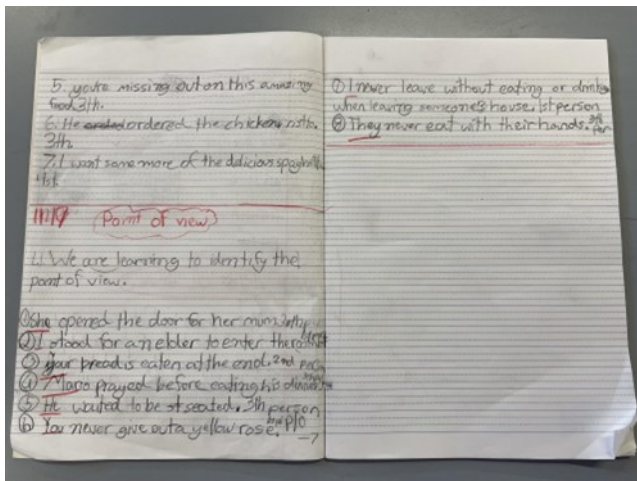 5. you're missing out on this amazing
food. 3th.
6. He ordered the chicken
3th.
7. I want some more of the delicious
1st
11/19 Point of view
L.I We are learning to identify the
point of view.
① She opened the door for her mum.
② I stood for an elder to enter the
③ your bread is eaten at the end. 2nd
④ Mario prayed before eating his dinner.
⑤ He waited to be st seated. 3th person
⑥ You never give out a yellow rose.
① I never leave without eating or
when leaving someone's house. 1st person
⑧ They never eat with their hands.